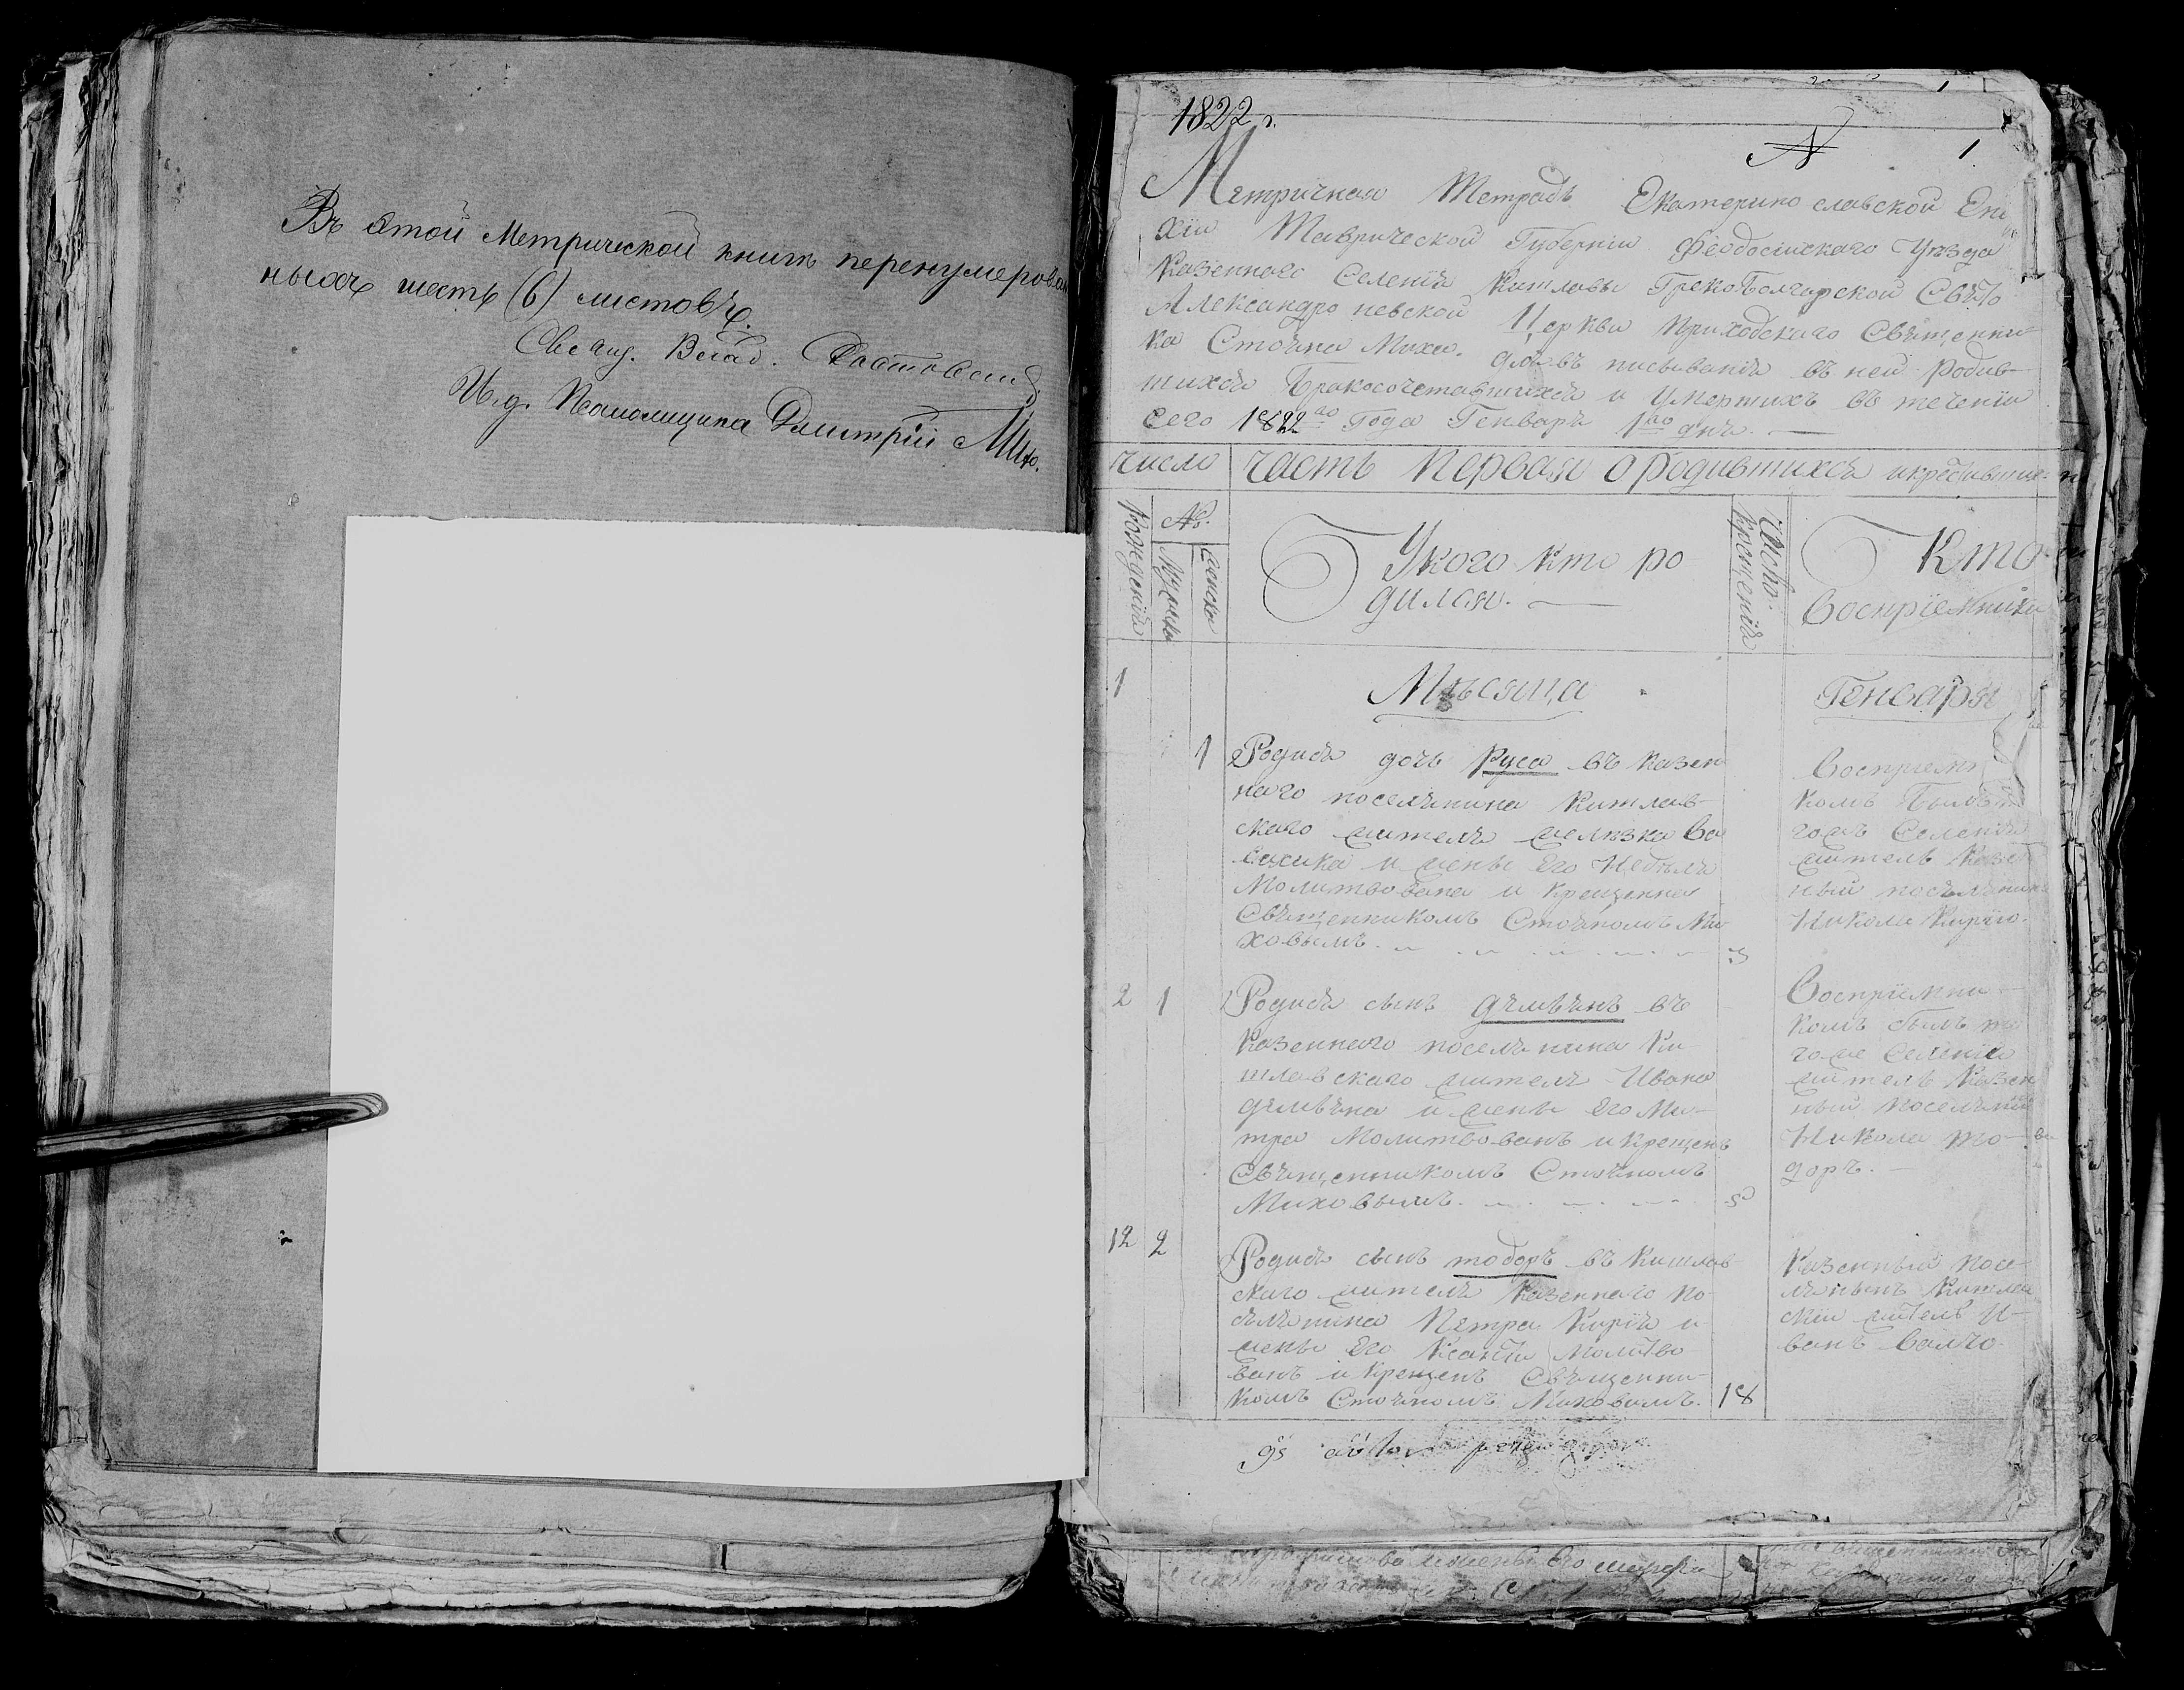 Въ этой Метрической книгѣ перенумерован
ныхъ шесть (6) листовъ.
Свещ. Влад.
И. д. Псаломщика Димитрій
1822 г.
N 1
Метричная Тетрадь Екатеринославской Епа
хіи Таврической Губерніи Феодосійскаго Уѣзда
Казеннаго Селенія Кишлавы Грекоболгарской Свѣто
Александроневской Церкви приходскаго Свѣщенни-
ка Стоѣна Михо. для въписыванія въ ней Родив-
шихсѣ Бракосочетавшихсѣ и Умершихъ въ теченіи
сего 1822го Года Генварѣ 1го днѣ.
число часть Первая о родившихсѣ и кре
Рожденія
№.
Мужска
Женска
У кого кто ро
дилсѧ.
Число.
Крещенія
Кто
Воспріемники
1 Мѣсяца Генваря
1 Родисѣ дочь Руса въ казен
наго поселѣнина Кишлав-
скаго жителѣ желѣзка Ва
и жены Его Недѣлѣ
Молитвована и крещенна
Свѣщенникомъ Стоѣномъ Ми
ховымъ. 3
Воспріемн
комъ Былъ
гожъ Селенія
житель Казен
ный поселѣнин
Никола Кирио.
2 1 Родисѣ сынъ Дѣмѣѣнъ въ
Казеннаго поселѣнина Ки
шлавскаго жителѣ Ивана
и жены Его Ми-
тра Молитвованъ и крещенъ
Свѣщенникомъ Стоѣномъ
Миховымъ. 5
Воспріемни-
комъ былъ то
гоже Селенія
житель Казен
ный поселѣни
Никола То-
доръ.
12 2 Родисѣ сынъ тодоръ въ Кишлав
скаго жителѣ Казеннаго по
сѣлѣнина Петра Киріѣ и
жены Его Молитво
ванъ и Крещенъ Свѣщенни-
комъ Стоѣномъ Миховымъ. 18
Казенный посе-
лѣнинъ Кишлав
скій житель И-
ванъ Валчо.
жены Его